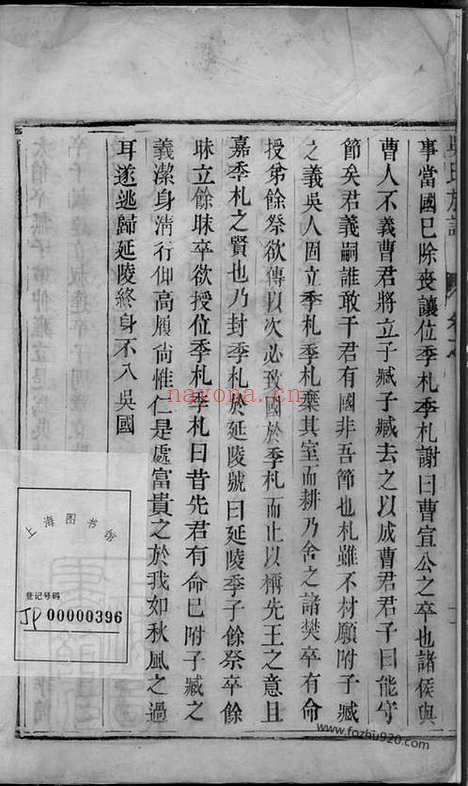 事當國已除喪讓位季札季札謝曰曹宣公之卒也諸侯與
曹人不義曹君將立子臧子臧去之以成曹君君子曰能守
節矣君義嗣誰敢干君有國非吾節也札雖不材願附子臧
之義吳人固立季札棄其室而耕乃舍之諸樊卒有命
授弟餘祭欲傳以次必致國於季札而止以稱先王之意且
嘉季札之賢也乃封季札於延陵號曰延陵季子餘祭卒餘
昧立餘昧卒欲授位季札季札曰昔先君有命已附子臧之
義潔身清行仰高履尚惟仁是處富貴之於我如秋風之過
耳遂逃歸延陵終身不入吳國
上海图书馆
登记号码
JP 00000396
nayona.cn
www.fozhu920.com